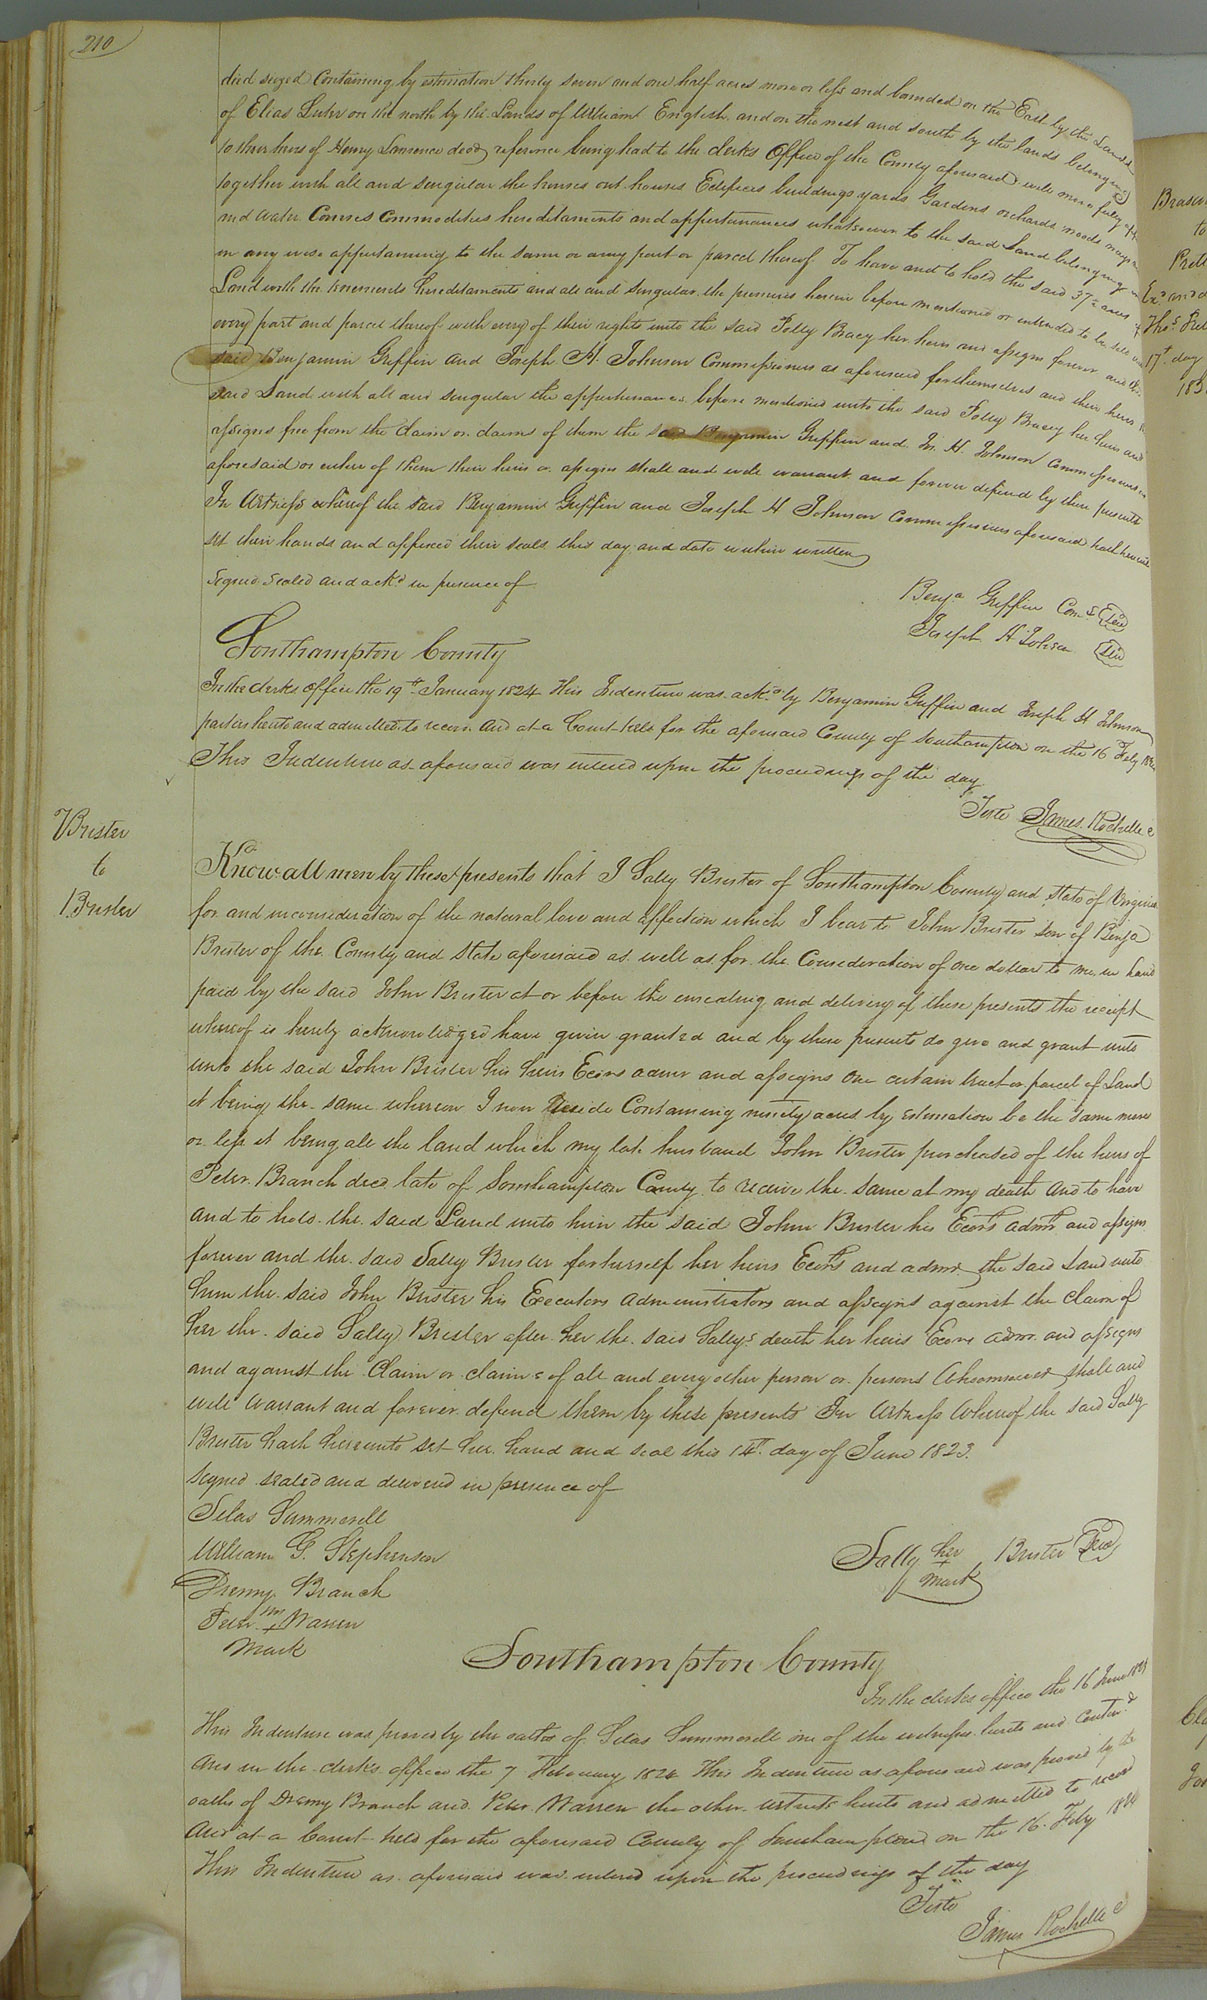 210
died seized Containing by estimation thirty seven and one half acres more or less and bounded on the East by the Lands
of Elias on the north by the Lands of William English and on the west and south by the lands belonging
to the heirs of Henry Lawrence decd reference being had to the clerks Office of the County aforesaid will more fully
together with all and singular the houses out houses Edifices buildings yards Gardens orchards woods ways
and water Courses Commodities hereditaments and appurtenances whatsoever to the said Land belonging or
in any wise appertaining to the same or any part or parcel thereof To have and to hold the said 37½ acres of
Land with the tenements hereditaments and all and singular the premises herein before mentioned or intended to be
every part and parcel thereof with every of their rights unto the said Polly Bracy her heirs and assigns forever and
said Benjamin Griffin and Joseph H. Johnson Commissioners as aforesaid for themselves and their heirs
said Land with all and singular the appurtenances before mentioned unto the said Polly Bracy her heirs and
assigns free from the claim or claims of them the said Benjamin Griffin and Jos. H. Johnson Commissioners
aforesaid or either of them their heirs or assigns shall and will warrant and forever defend by these presents
In Witness whereof the said Benjamin Griffin and Joseph H Johnson Commissioners aforesaid hath hereunto
set their hands and affixed their seals this day and date within written
Signed Sealed and ackd in presence of
Benja Griffin Coms
Joseph H Johson
Southampton County
In the clerks office the 19th January 1824 This Indenture was ackd by Benjamin Griffin and Joseph H Johnson
parties hereto and admitted to record And at a Court held for the aforesaid County of Southampton on the 16 Feby
This Indenture as aforesaid was entered upon the proceedings of the day
Teste James Rochelle c
Brister
to
Brister
Know all men by these presents that I Sally Brister of Southampton County and State of Virginia
for and in consideration of the natural love and affection which I bear to John Brister son of Benja
Brister of the County and State aforesaid as well as for the Consideration of one dollar to me in hand
paid by the said John Brister at or before the ensealing and delivery of these presents the receipt
whereof is hereby acknowledged have given granted and by these presents do give and grant unto
unto the said John Brister his heirs Ecors admr and assigns one certain tract or parcel of Land
it being the same whereon I now Reside Containing ninety acres by estimation be the same more
or less it being all the land which my late husband John Brister purchased of the heirs of
Peter Branch decd late of Southampton County to receive the same at my death and to have
and to hold the said Land unto him the said John Brister his Ecors admrs and assigns
forever and the said Sally Brister for herself her heirs Ecors and admrs the said Land unto
him the said John Brister his Executors administrators and assigns against the claim of
her the said Sally Brister after her the said Sallys death her heirs Ecors admr and assigns
and against the Claim or claims of all and every other person or persons whomsoever shall and
will warrant and forever defend them by these presents In Witness Whereof the said Sally
Brister hath hereunto set her hand and seal this 14th day of June 1823.
Signed sealed and delivered in presence of
Silas Summerell
William G. Stephenson
Drewry Branch
Peter his + Warren
mark
Sally her + Brister
mark
Southampton County
In the clerks office the 16 June
This Indenture was proved by the oaths of Silas Summerell one of the witnesses hereto and
And in the clerks office the 7 February 1824 This Indenture as aforesaid was proved by the
oaths of Drewry Branch and Peter Warren the other witness hereto and admitted to record
And at a Court held for the aforesaid County of Southampton on the 16 Feby 1824
This Indenture as aforesaid was entered upon the proceedings of the day
Teste
James Rochelle c
to
17th day